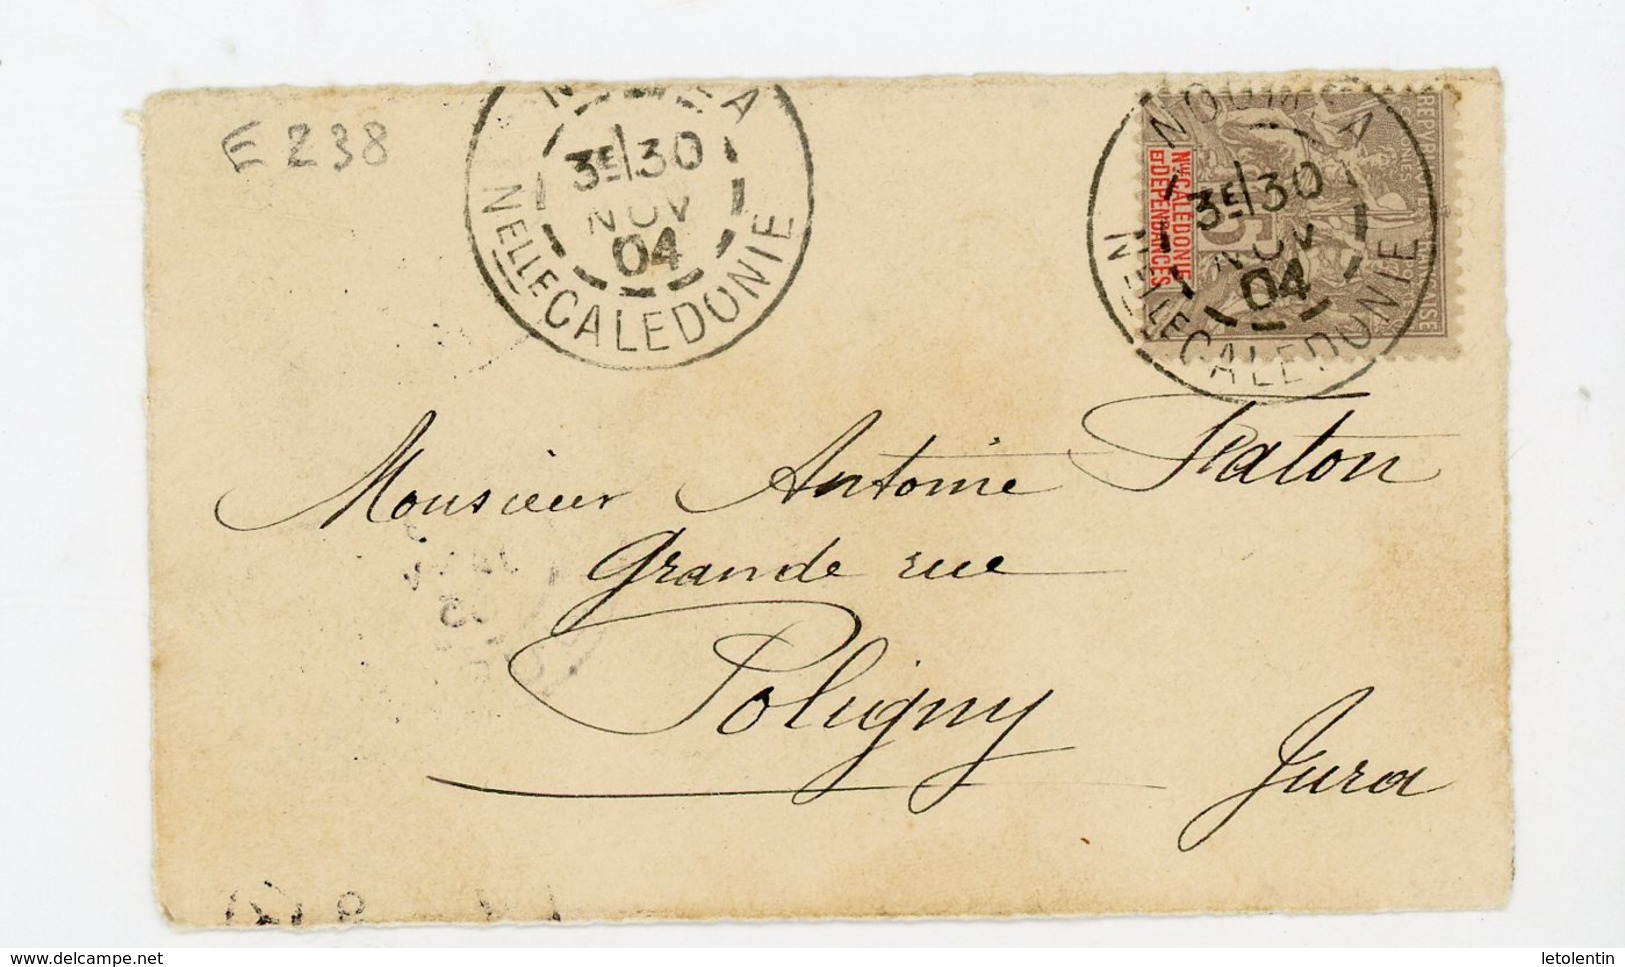 E 238
3E/30
NOV
04
NELLE CALEDONIE
NOUMEA
3E/30
NOV
04
NELLE CALEDONIE
Nlle CALEDONIE
ET DÉPENDANCES
15
Monsieur Antoine
Grande rue
Poligny
Jura
delcampe.net
letolentin